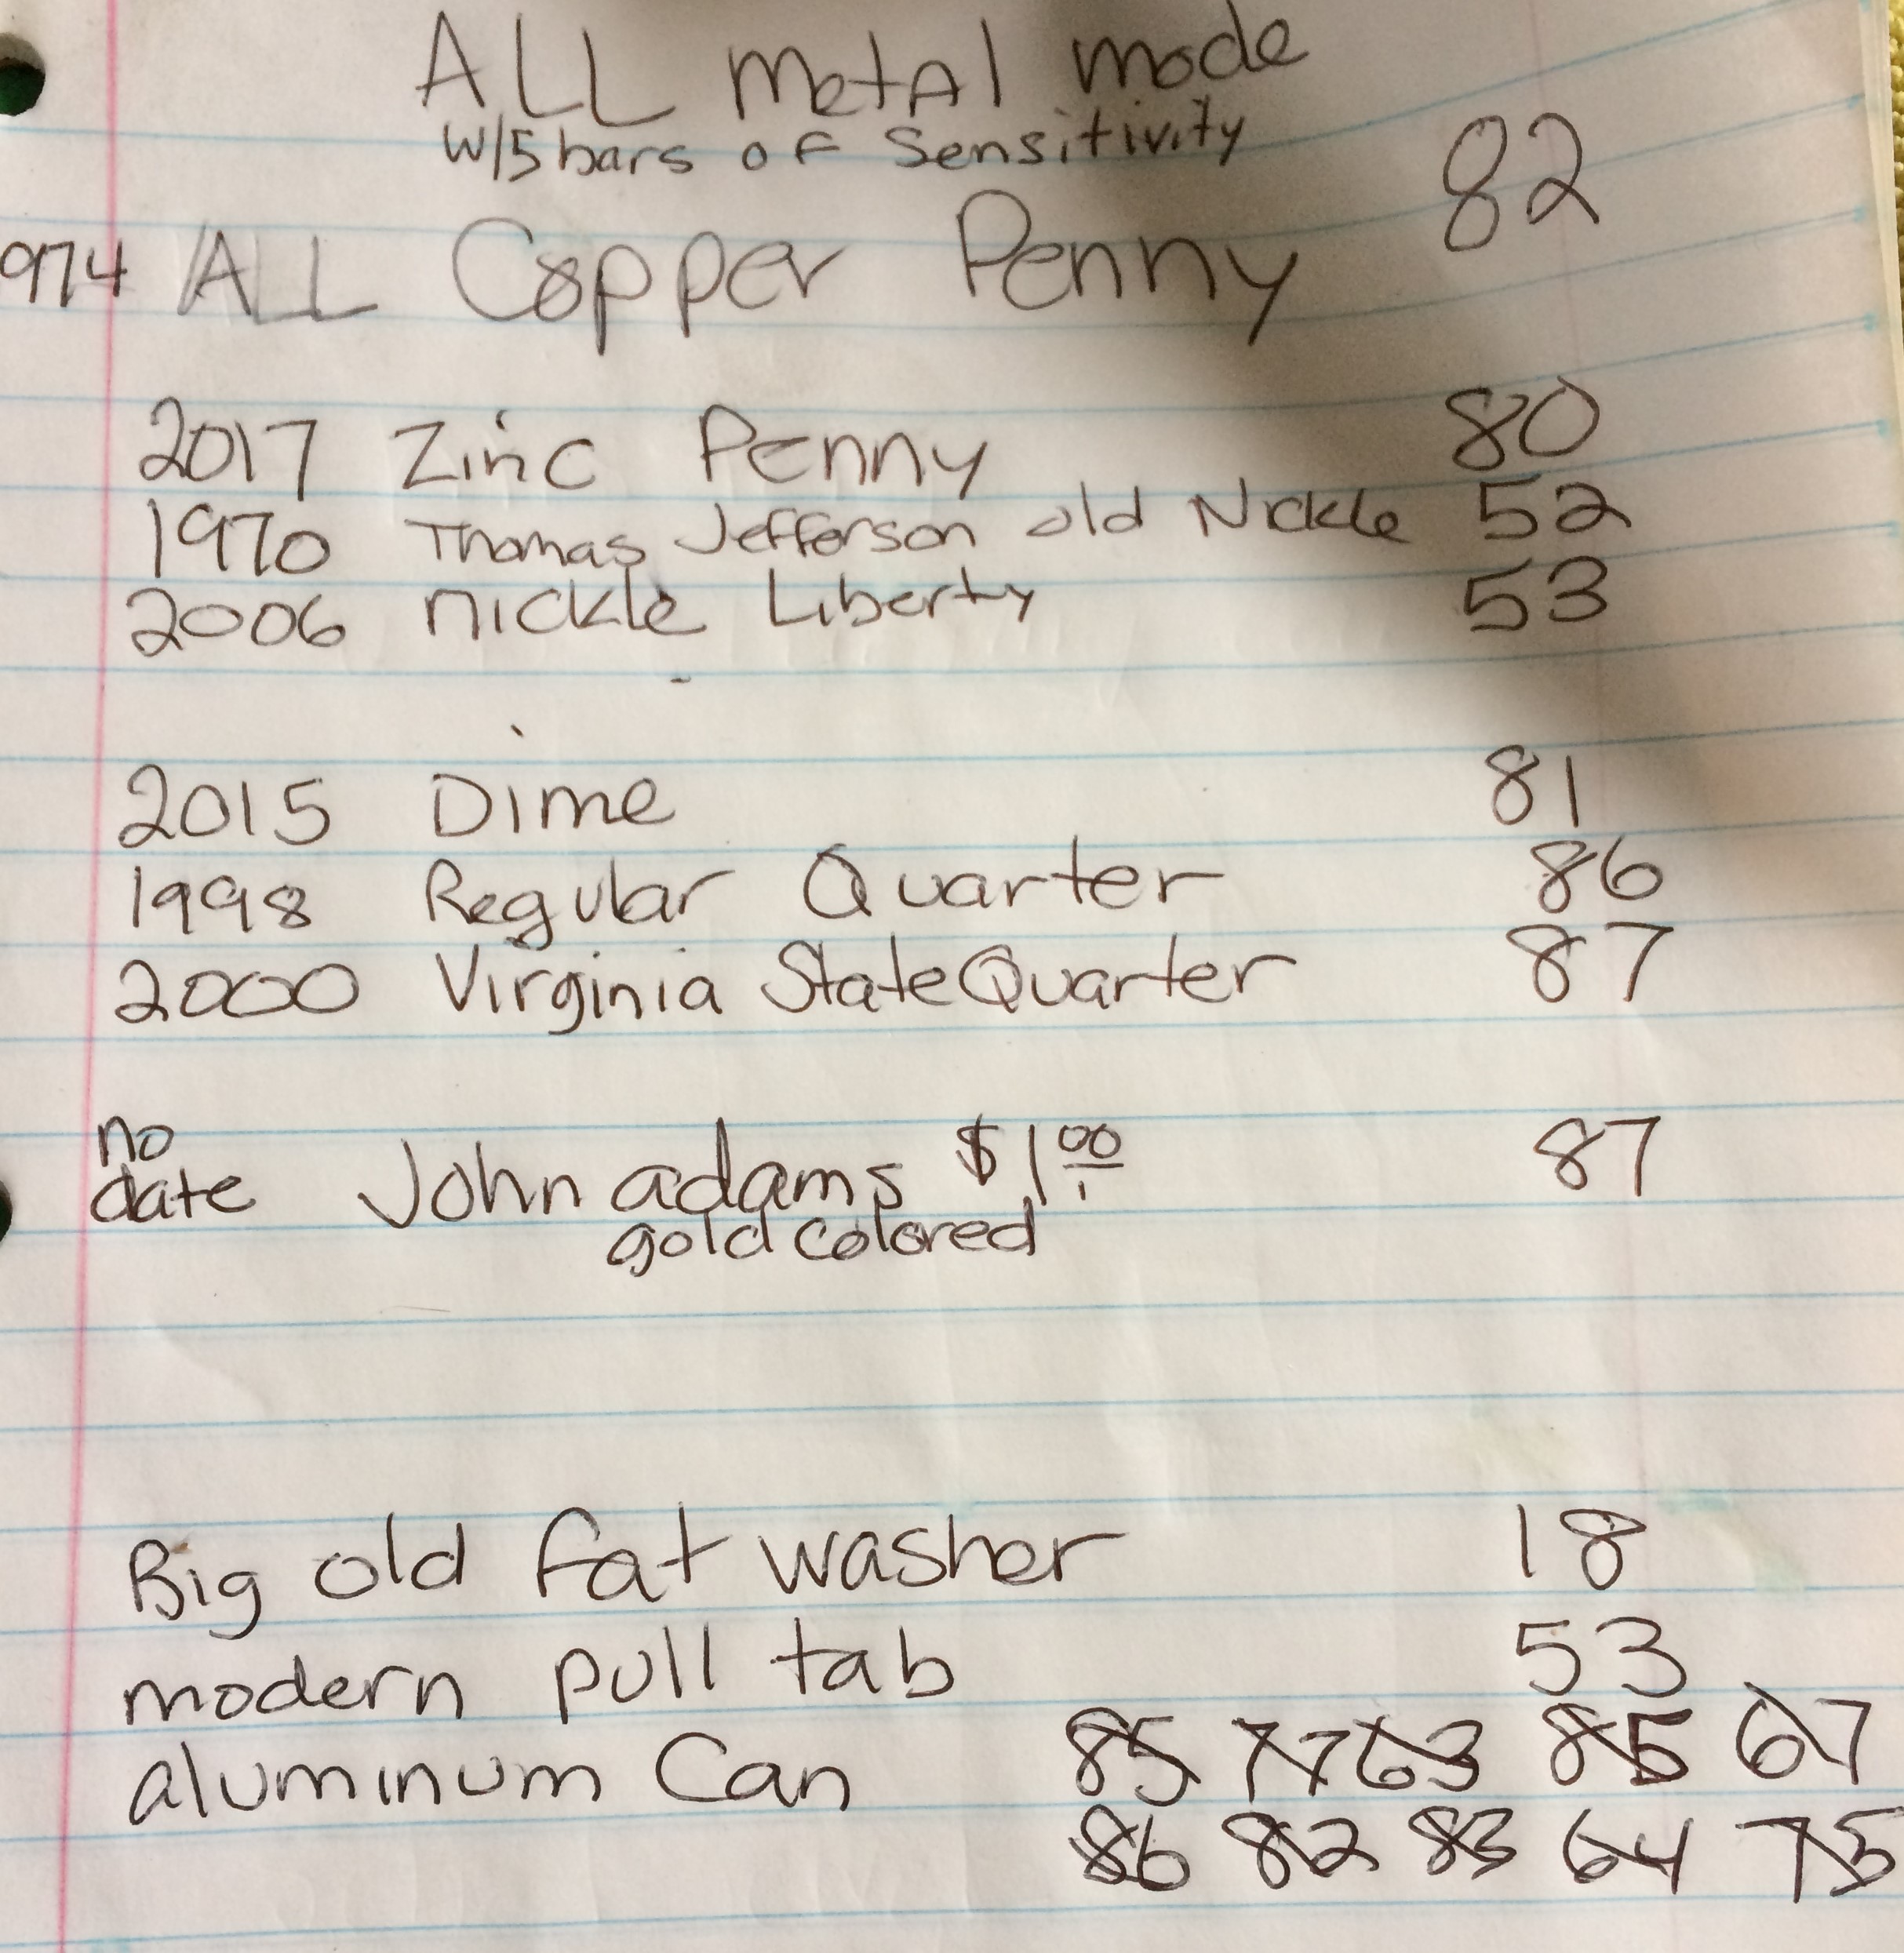 ALL MetAl mode
W/5 bars oF Sensitivity
974 ALL Copper Penny 82
2017 Zinc Penny 80
1970 Thomas Jefferson old Nickle 52
2006 nickle Liberty 53
2015 Dime 81
1998 Regular Quarter 86
2000 Virginia State Quarter 87
no date John adams $1.00 87
gold colored
Big old fat washer 18
modern pull tab 53
aluminum Can 85 77 63 85 67
86 82 83 64 75